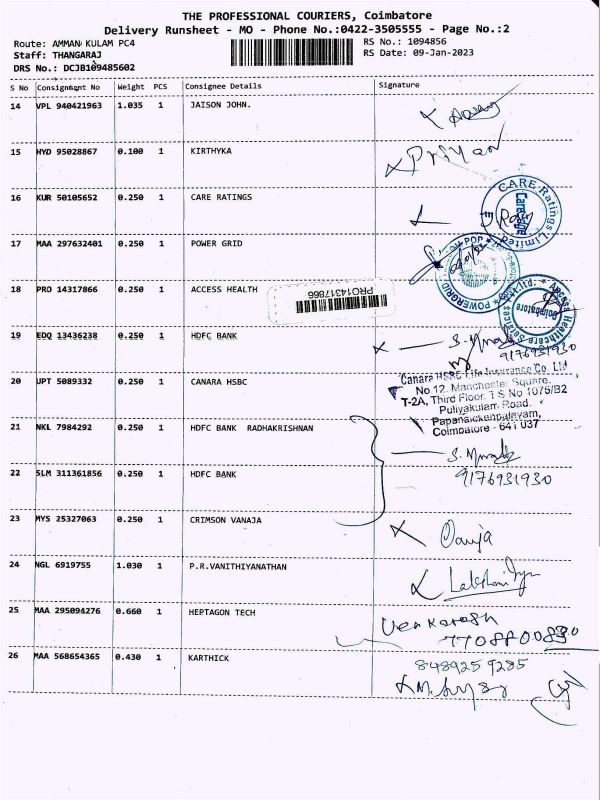 THE PROFESSIONAL COURIERS, Coimbatore
Delivery Runsheet - MO - Phone No.:0422-3505555 - Page No.:2
Route: AMMAN KULAM PC4
RS No.: 1094856
Staff: THANGARAJ
RS Date: 09-Jan-2023
DRS No.: DCJB109485602
S No Consignment No Weight PCS Consignee Details Signature
14 VPL 940421963 1.035 1 JAISON JOHN.
15 HYD 95028867 0.100 1 KIRTHYKA
Priyan
16 KUR 50105652 0.250 1 CARE RATINGS
CARE Ratings Limited
17 MAA 297632401 0.250 1 POWER GRID
POWERGRID
18 PRO 14317866 0.250 1 ACCESS HEALTH
PRO14317866
Access Healthcare Services Pvt.Ltd.
Coimbatore
19 EDQ 13436238 0.250 1 HDFC BANK
9176931930
20 UPT 5089332 0.250 1 CANARA HSBC
Canara HSBC Life Insurance Co. Ltd
No 12, Manchester Square,
T-2A, Third Floor, T S No 1075/B2
Puliyakulam Road,
Papanaickenpalayam,
Coimbatore - 641 037
21 NKL 7984292 0.250 1 HDFC BANK RADHAKRISHNAN
22 SLM 311361856 0.250 1 HDFC BANK
9176931930
23 MYS 25327063 0.250 1 CRIMSON VANAJA
24 NGL 6919755 1.030 1 P.R.VANITHIYANATHAN
25 MAA 295094276 0.660 1 HEPTAGON TECH
26 MAA 568654365 0.430 1 KARTHICK
8489259285